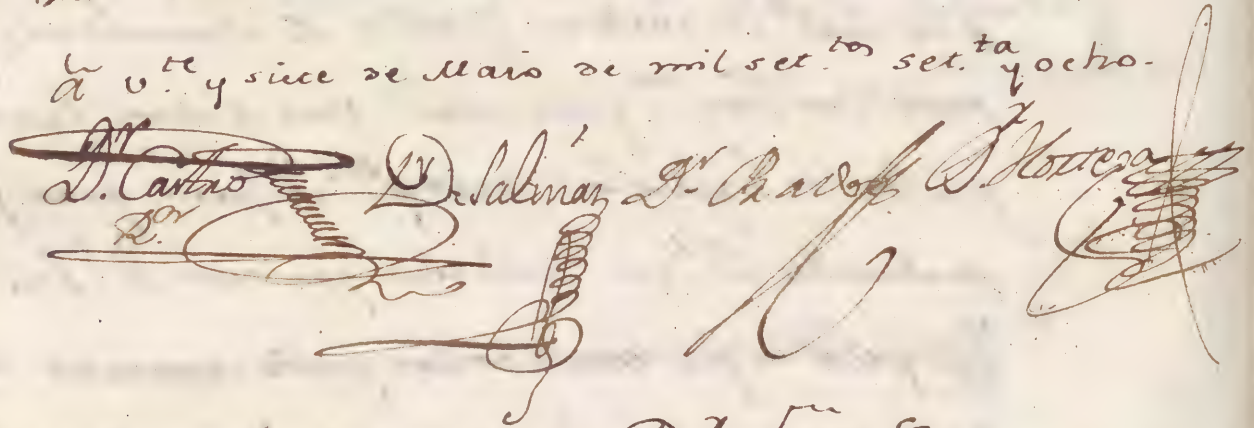 à v.te y siete de Maio de mil set.tos set.ta y ocho.
D.r Castro D.r Salinas D.r D.r Hortega
R.or